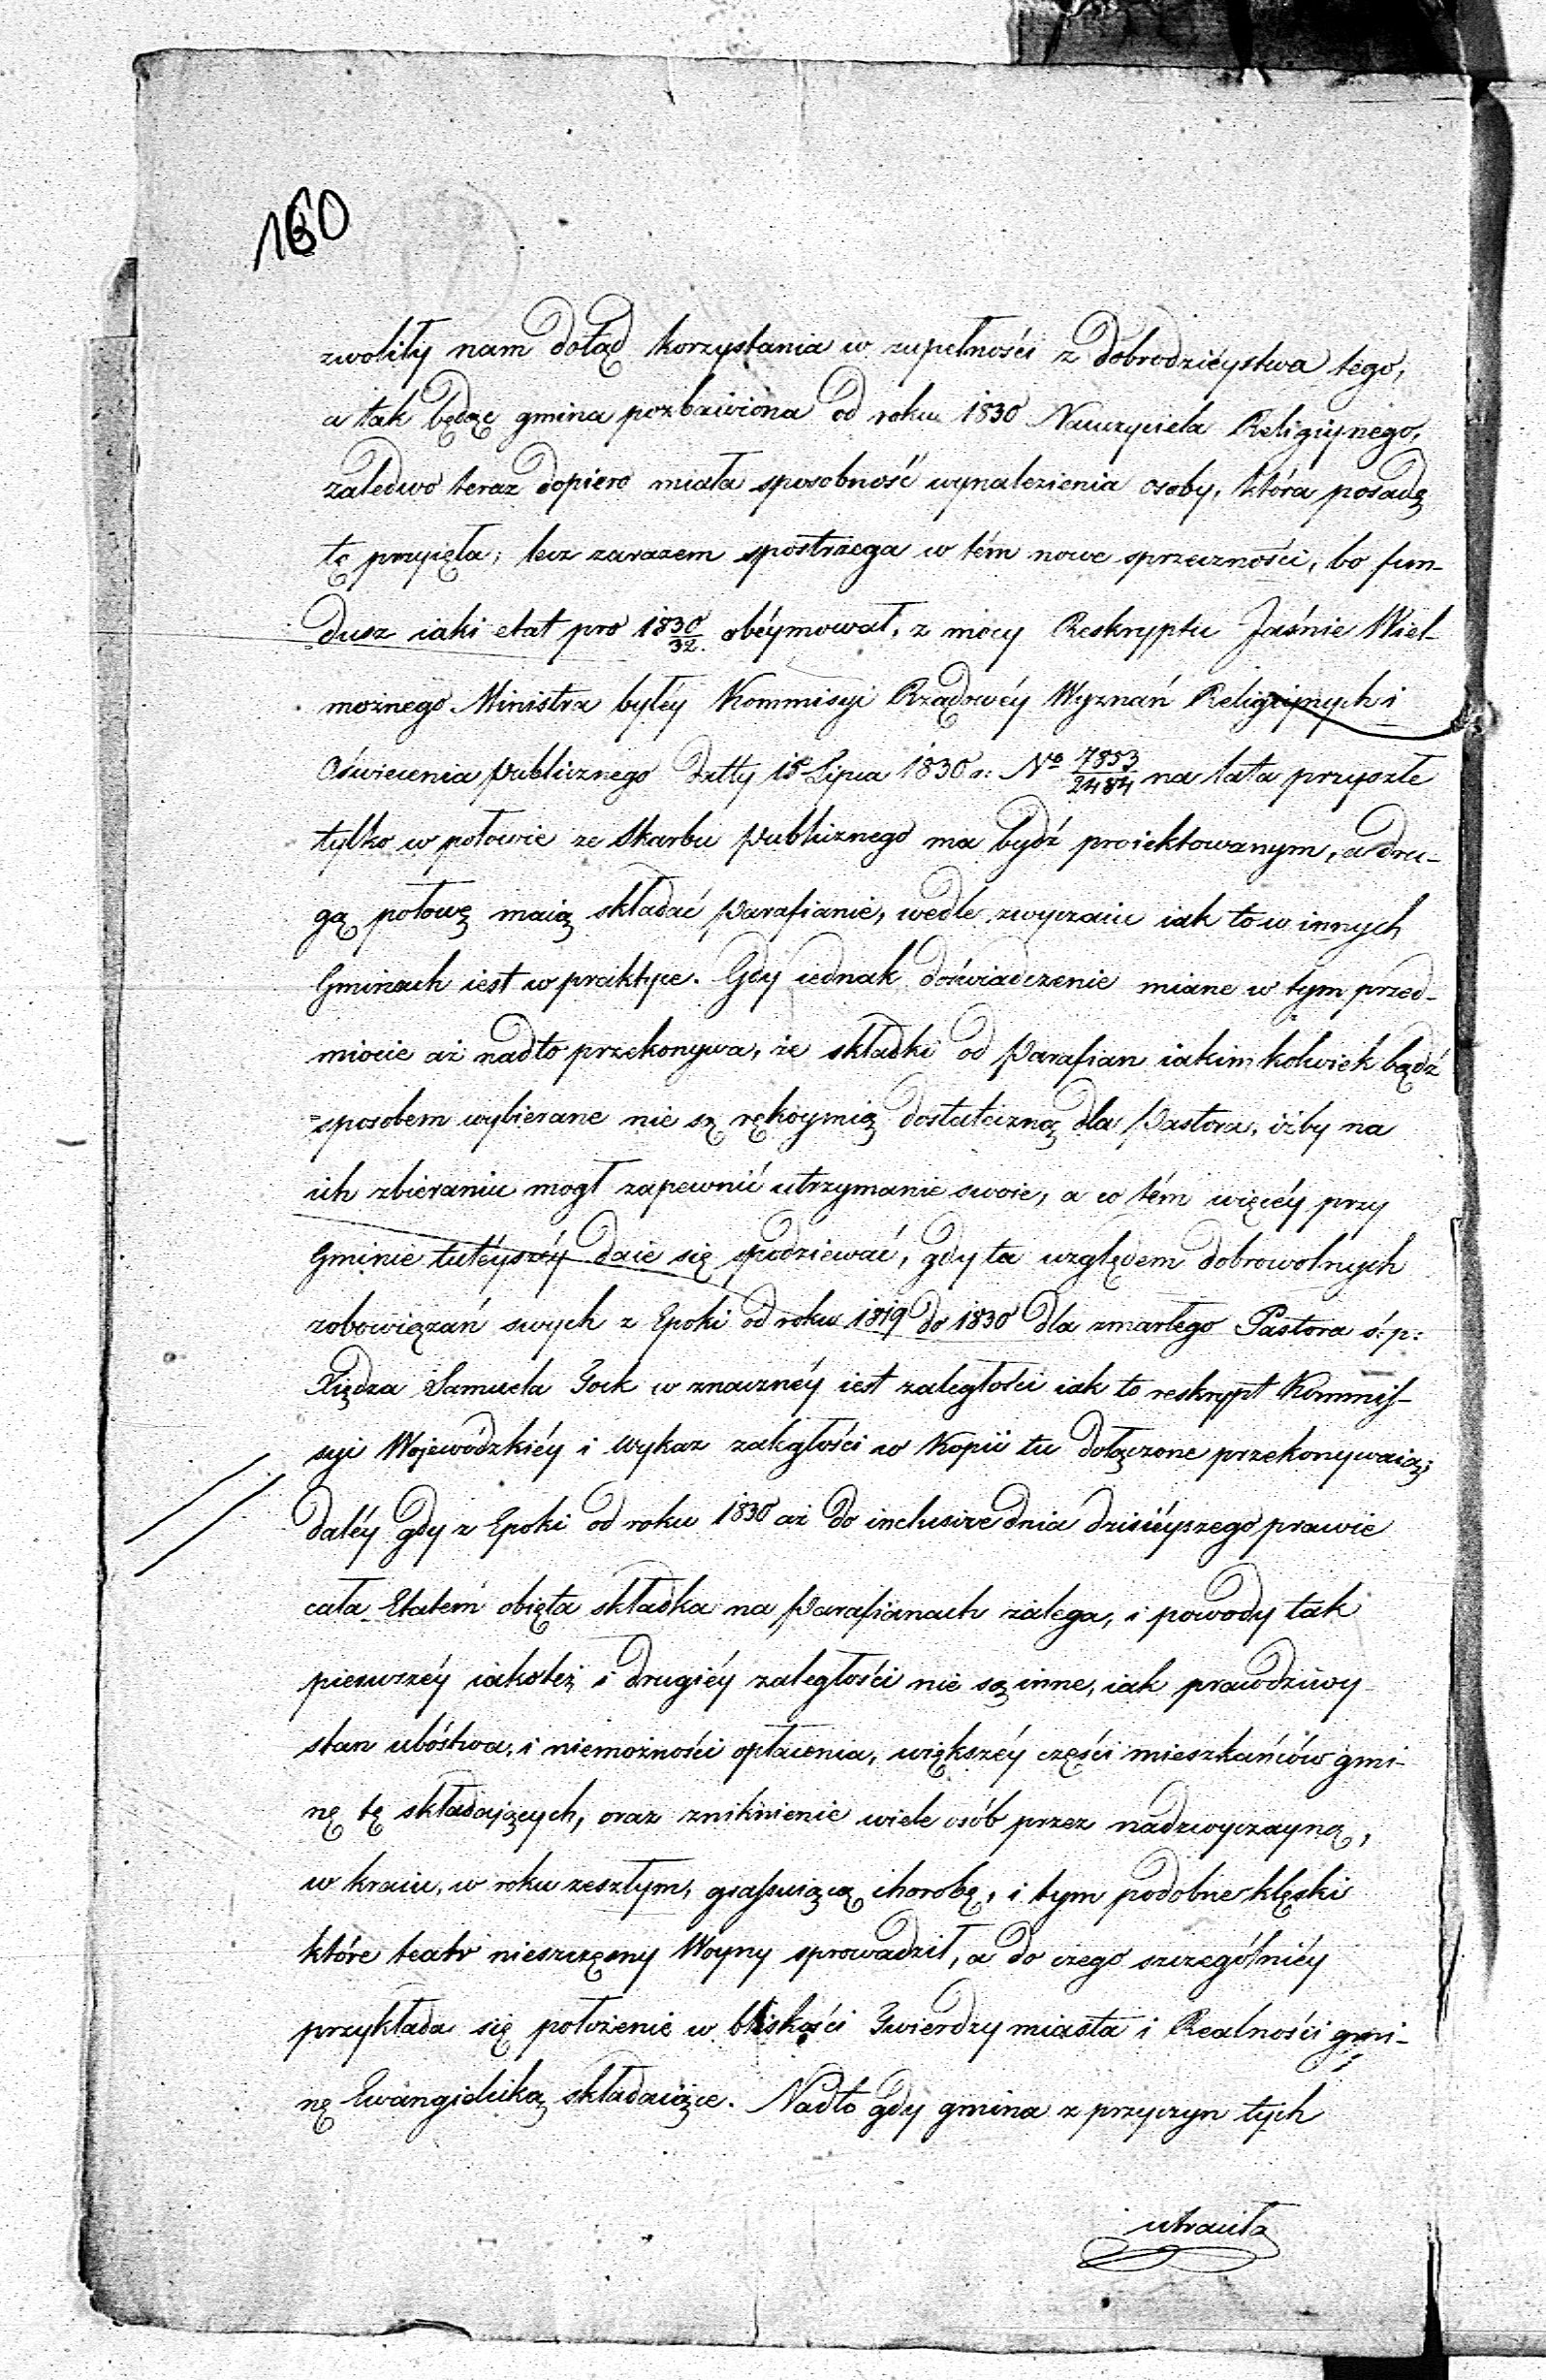 160
zwoliły nam dotąd korzystania w zupełności z dobrodzieystwa tego,
a tak będąc gmina pozbawiona od roku 1830 Nauczyciela Religiynego,
zaledwo teraz dopiero miała sposobność wynalezienia osoby, która posadę
tę przyięła; lecz zarazem spostrzega w tém nowe sprzeczności, bo fun-
dusz iaki etat pro 1830/32. obéymował, z mocy Reskryptu Jaśnie Wiel-
możnego Ministra byłéy Kommisyi Rządowéy Wyznań Religiynych i
Oświecenia publicznego datty 15 Lipca 1830 r: No 7853/2484 na lata przyszłe
tylko w połowie ze Skarbu publicznego ma bydź proiektowanym, a dru-
gą połowę maią składać parafianie, wedle zwyczaiu iak to w innych
Gminach iest w praktyce. Gdy iednak doświadczenie miane w tym przed-
miocie aż nadto przekonywa, że składki od parafian iakimkolwiek bądź
sposobem wybierane nie są rękoymią dostateczną dla pastora, iżby na
ich zbieraniu mogł zapewnić utrzymanie swoie, a co tém więcéy przy
Gminie tutéyszéy daie się spodziewać, gdy ta względem dobrowolnych
zobowiązań swych z Epoki od roku 1819 do 1830 dla zmarłego Pastora ś: p:
Xiędza Samuela Jock w znacznéy iest zaległości iak to reskrypt Kommis-
syi Wojewódzkiéy i wykaz zaległości w Kopii tu dołączone przekonywaią;
daléy gdy z Epoki od roku 1830 aż do inclusive dnia dzisiéyszego prawie
cała Etatem obięta składka na parafianach zalega, i powody tak
pierwszéy iakoteż i drugiéy zaległości nie są inne, iak prawdziwy
stan ubóstwa, i niemożności opłacenia, większéy części mieszkańców gmi-
nę tę składających, oraz zniknienie wiele osób przez nadzwyczayną,
w kraiu, w roku zeszłym, grassuiącą chorobę, i tym podobne klęski
które teatr nieszczęsny Woyny sprowadził, a do czego szczególniéy
przykłada się położenie w bliskości Twierdzy miasta i Realności gmi-
nę Ewangielicką składaiące. Nadto gdy gmina z przyczyn tych
utraciła